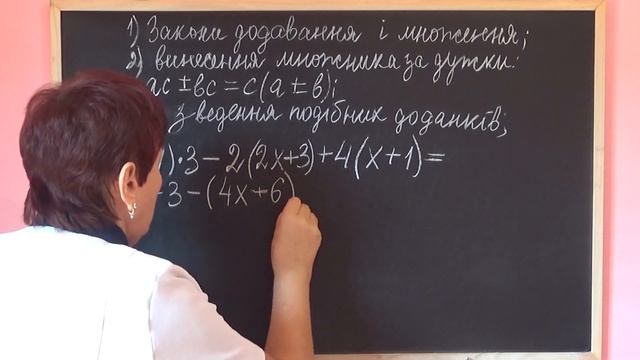 1) Закони додавання і множення;
2) винесення множника за дужки:
ac ± bc = c(a ± b);
зведення подібних доданків;
)·3 − 2(2x+3)+4(x+1)=
3 − (4x+6)